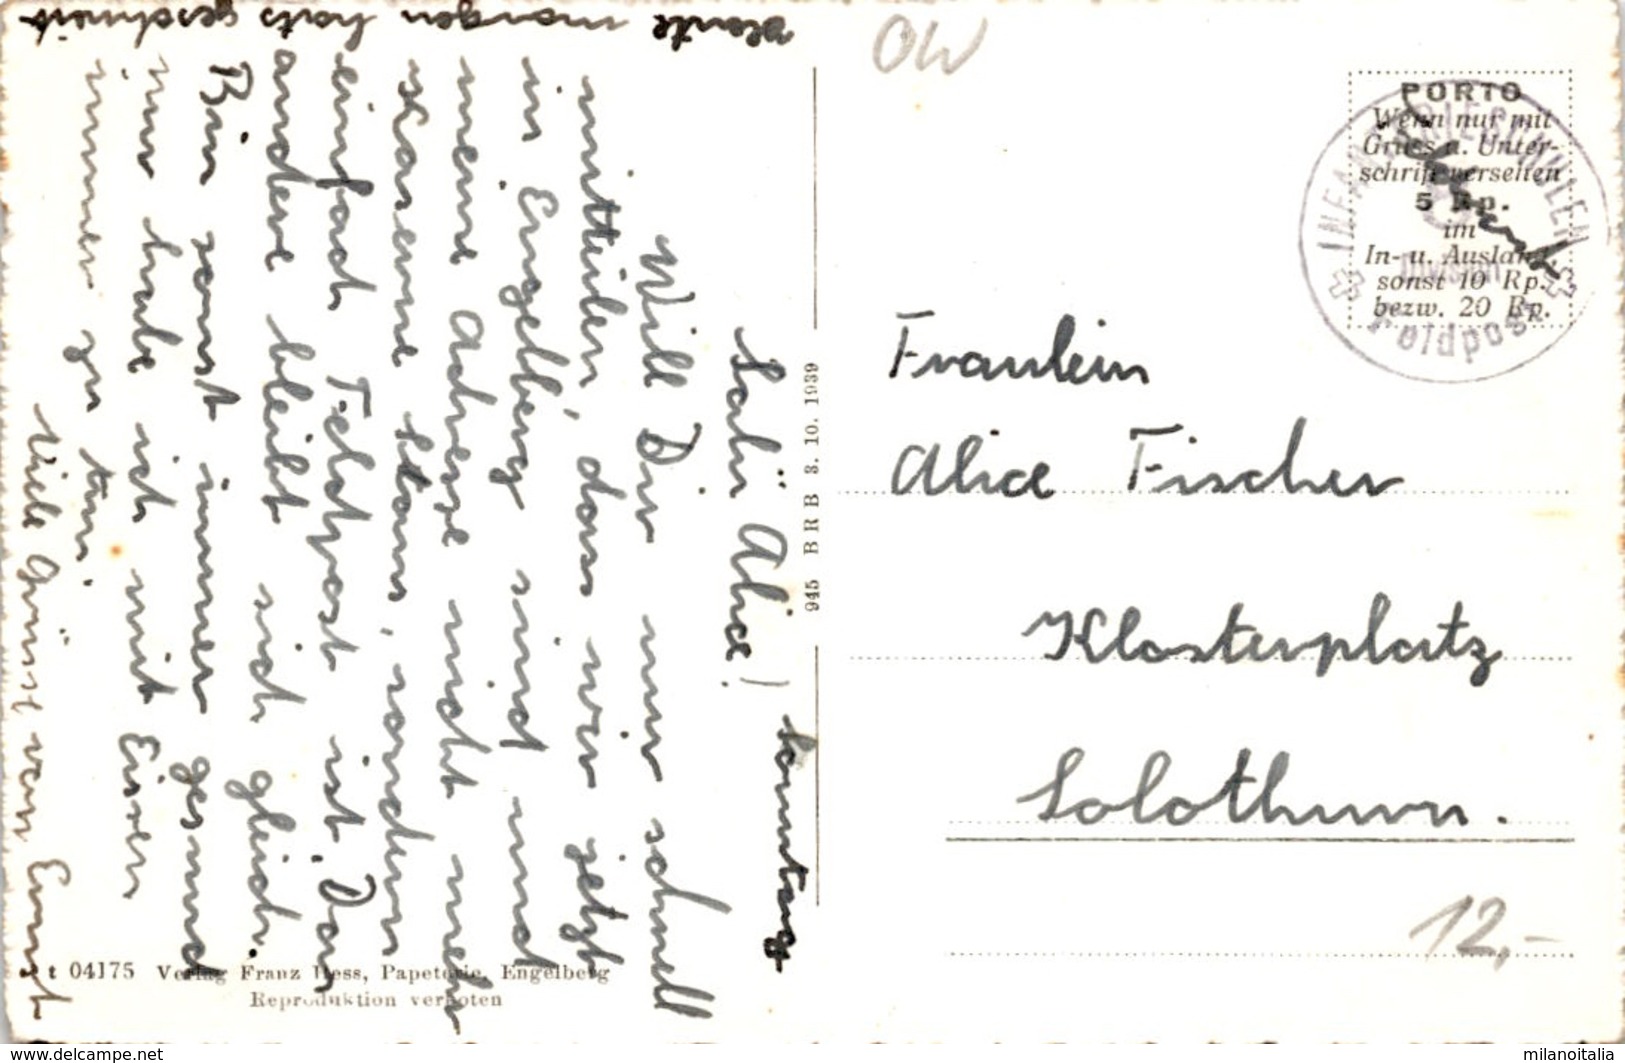 Sonntag
Salü Alice!
Will Dir nur schnell
mitteilen, dass wir jetzt
in Engelberg sind und
meine Adresse nicht mehr
Kaserne Stans, sondern
einfach Feldpost ist. Das
andere bleibt sich gleich.
Bin sonst immer gesund
nur habe ich mit Eisen
immer zu tun.
Viele Grüsse von Ernst
Heute morgen hats geschneit
OW
PORTO
Wenn nur mit
Gruss u. Unter-
schrift versehen
5 Rp.
im
In- u. Ausland,
sonst 10 Rp.
bezw. 20 Rp.
Division
Feldpost
Fraulein
Alice Fischer
Klosterplatz
Solothurn.
12,-
945 B R B 3. 10. 1939
04175 Verlag Franz Hess, Papeterie, Engelberg
Reproduktion verboten
www.delcampe.net
milanoitalia